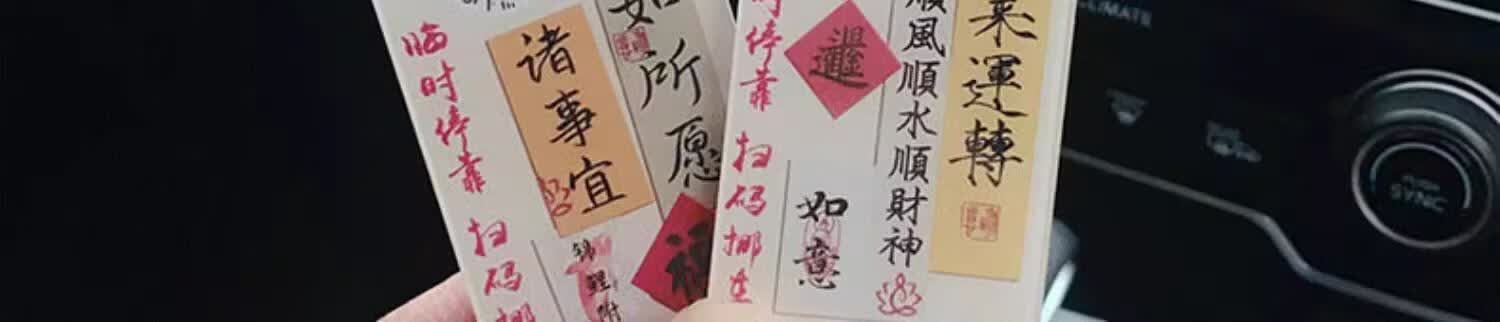 临时停靠 扫码挪
诸事宜
如所愿
锦鲤附
福
时停靠 扫码挪车
順風順水順財神
如意
来運轉
CLIMATE
SYNC